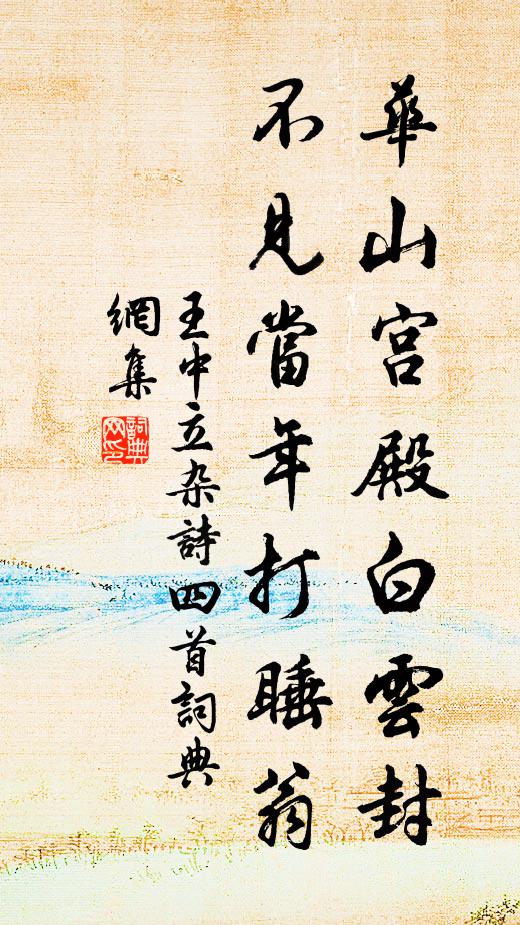 華山宫殿白雲封
不見當年打睡翁
王中立杂詩四首詞典
網集
詞典
网印